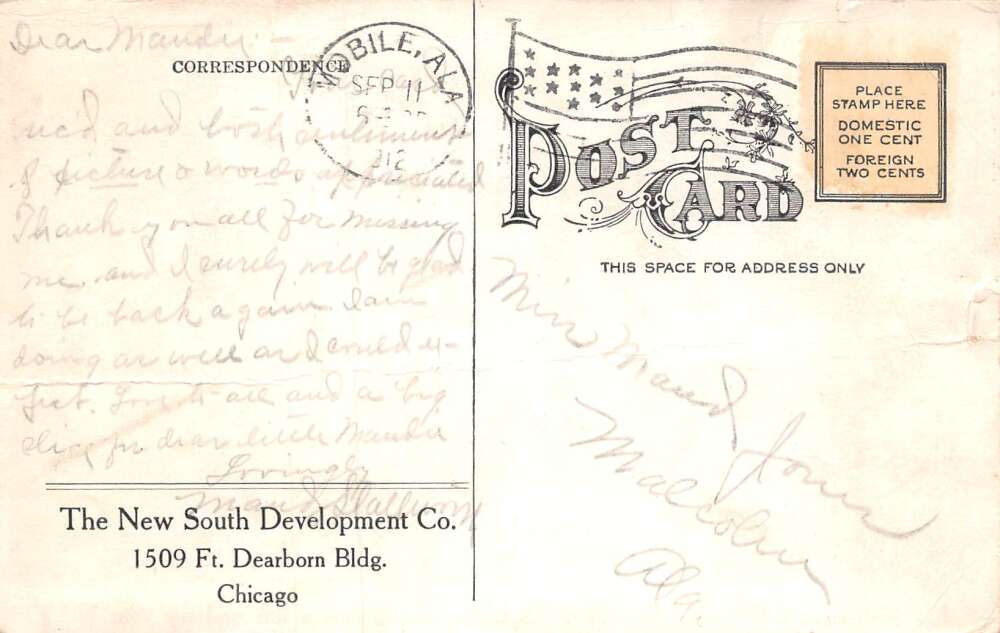 Dear Maudie: –
CORRESPONDENCE
Your card
rec'd and both sentiments
of picture & words appreciated
Thank you all for missing
me. and I surely will be glad
to be back again. I am
doing as well as I could ex-
pect. Love to all and a big
for dear little Maudie
Lovingly
Maud Stallworth
The New South Development Co.
1509 Ft. Dearborn Bldg.
Chicago
MOBILE, ALA
SEP 11
POST CARD
PLACE
STAMP HERE
DOMESTIC
ONE CENT
FOREIGN
TWO CENTS
THIS SPACE FOR ADDRESS ONLY
Miss Maud Jones
Malcolm
Ala.